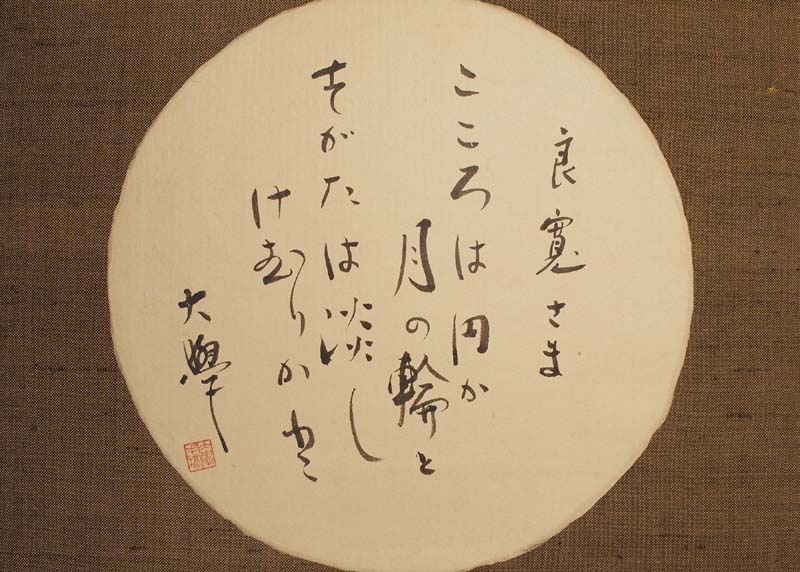 良寛さま
こころは円か
月の輪と
すがたは淡し
けむりかと
大學